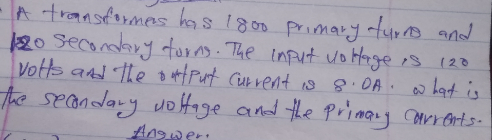 A transformers has 1800 primary turns and
120 secondary turns. The input voltage is 120
volts and the output current is 8.0A. what is
the secondary voltage and the primary currents.
Answer.